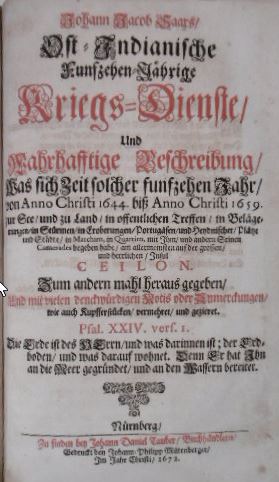 Johann Jacob Saars/
Ost-Indianische
Funfzehen-Jährige
Kriegs-Dienste/
Und
Wahrhafftige Beschreibung/
Was sich Zeit solcher funfzehen Jahr/
von Anno Christi 1644. biß Anno Christi 1659.
zur See/ und zu Land/ in offentlichen Treffen/ in Beläge-
rungen/ in Stürmen/ in Eroberungen/ Portugäsen/ und Heydnischer/ Plätze
und Städte/ in Marchirn, in Quartirn, mit Ihm/ und andern Seinen
Camerades begeben habe/ am allermeisten auf der grossen/
und herrlichen/ Insul
CEILON.
Zum andern mahl heraus gegeben/
Und mit vielen denckwürdigen Notis oder Anmerckungen/
wie auch Kupfferstücken/ vermehret/ und gezieret.
Psal. XXIV. vers. 1.
Die Erde ist des HErrn/ und was darinnen ist; der Erd-
boden/ und was darauf wohnet. Denn Er hat Ihn
an die Meer gegründet/ und an den Wassern bereitet.
Nürnberg/
Zu finden bey Johann Daniel Tauber/ Buchhändlern/
Gedruckt bey Johann-Philipp Miltenberger/
Im Jahr Christi/ 1672.